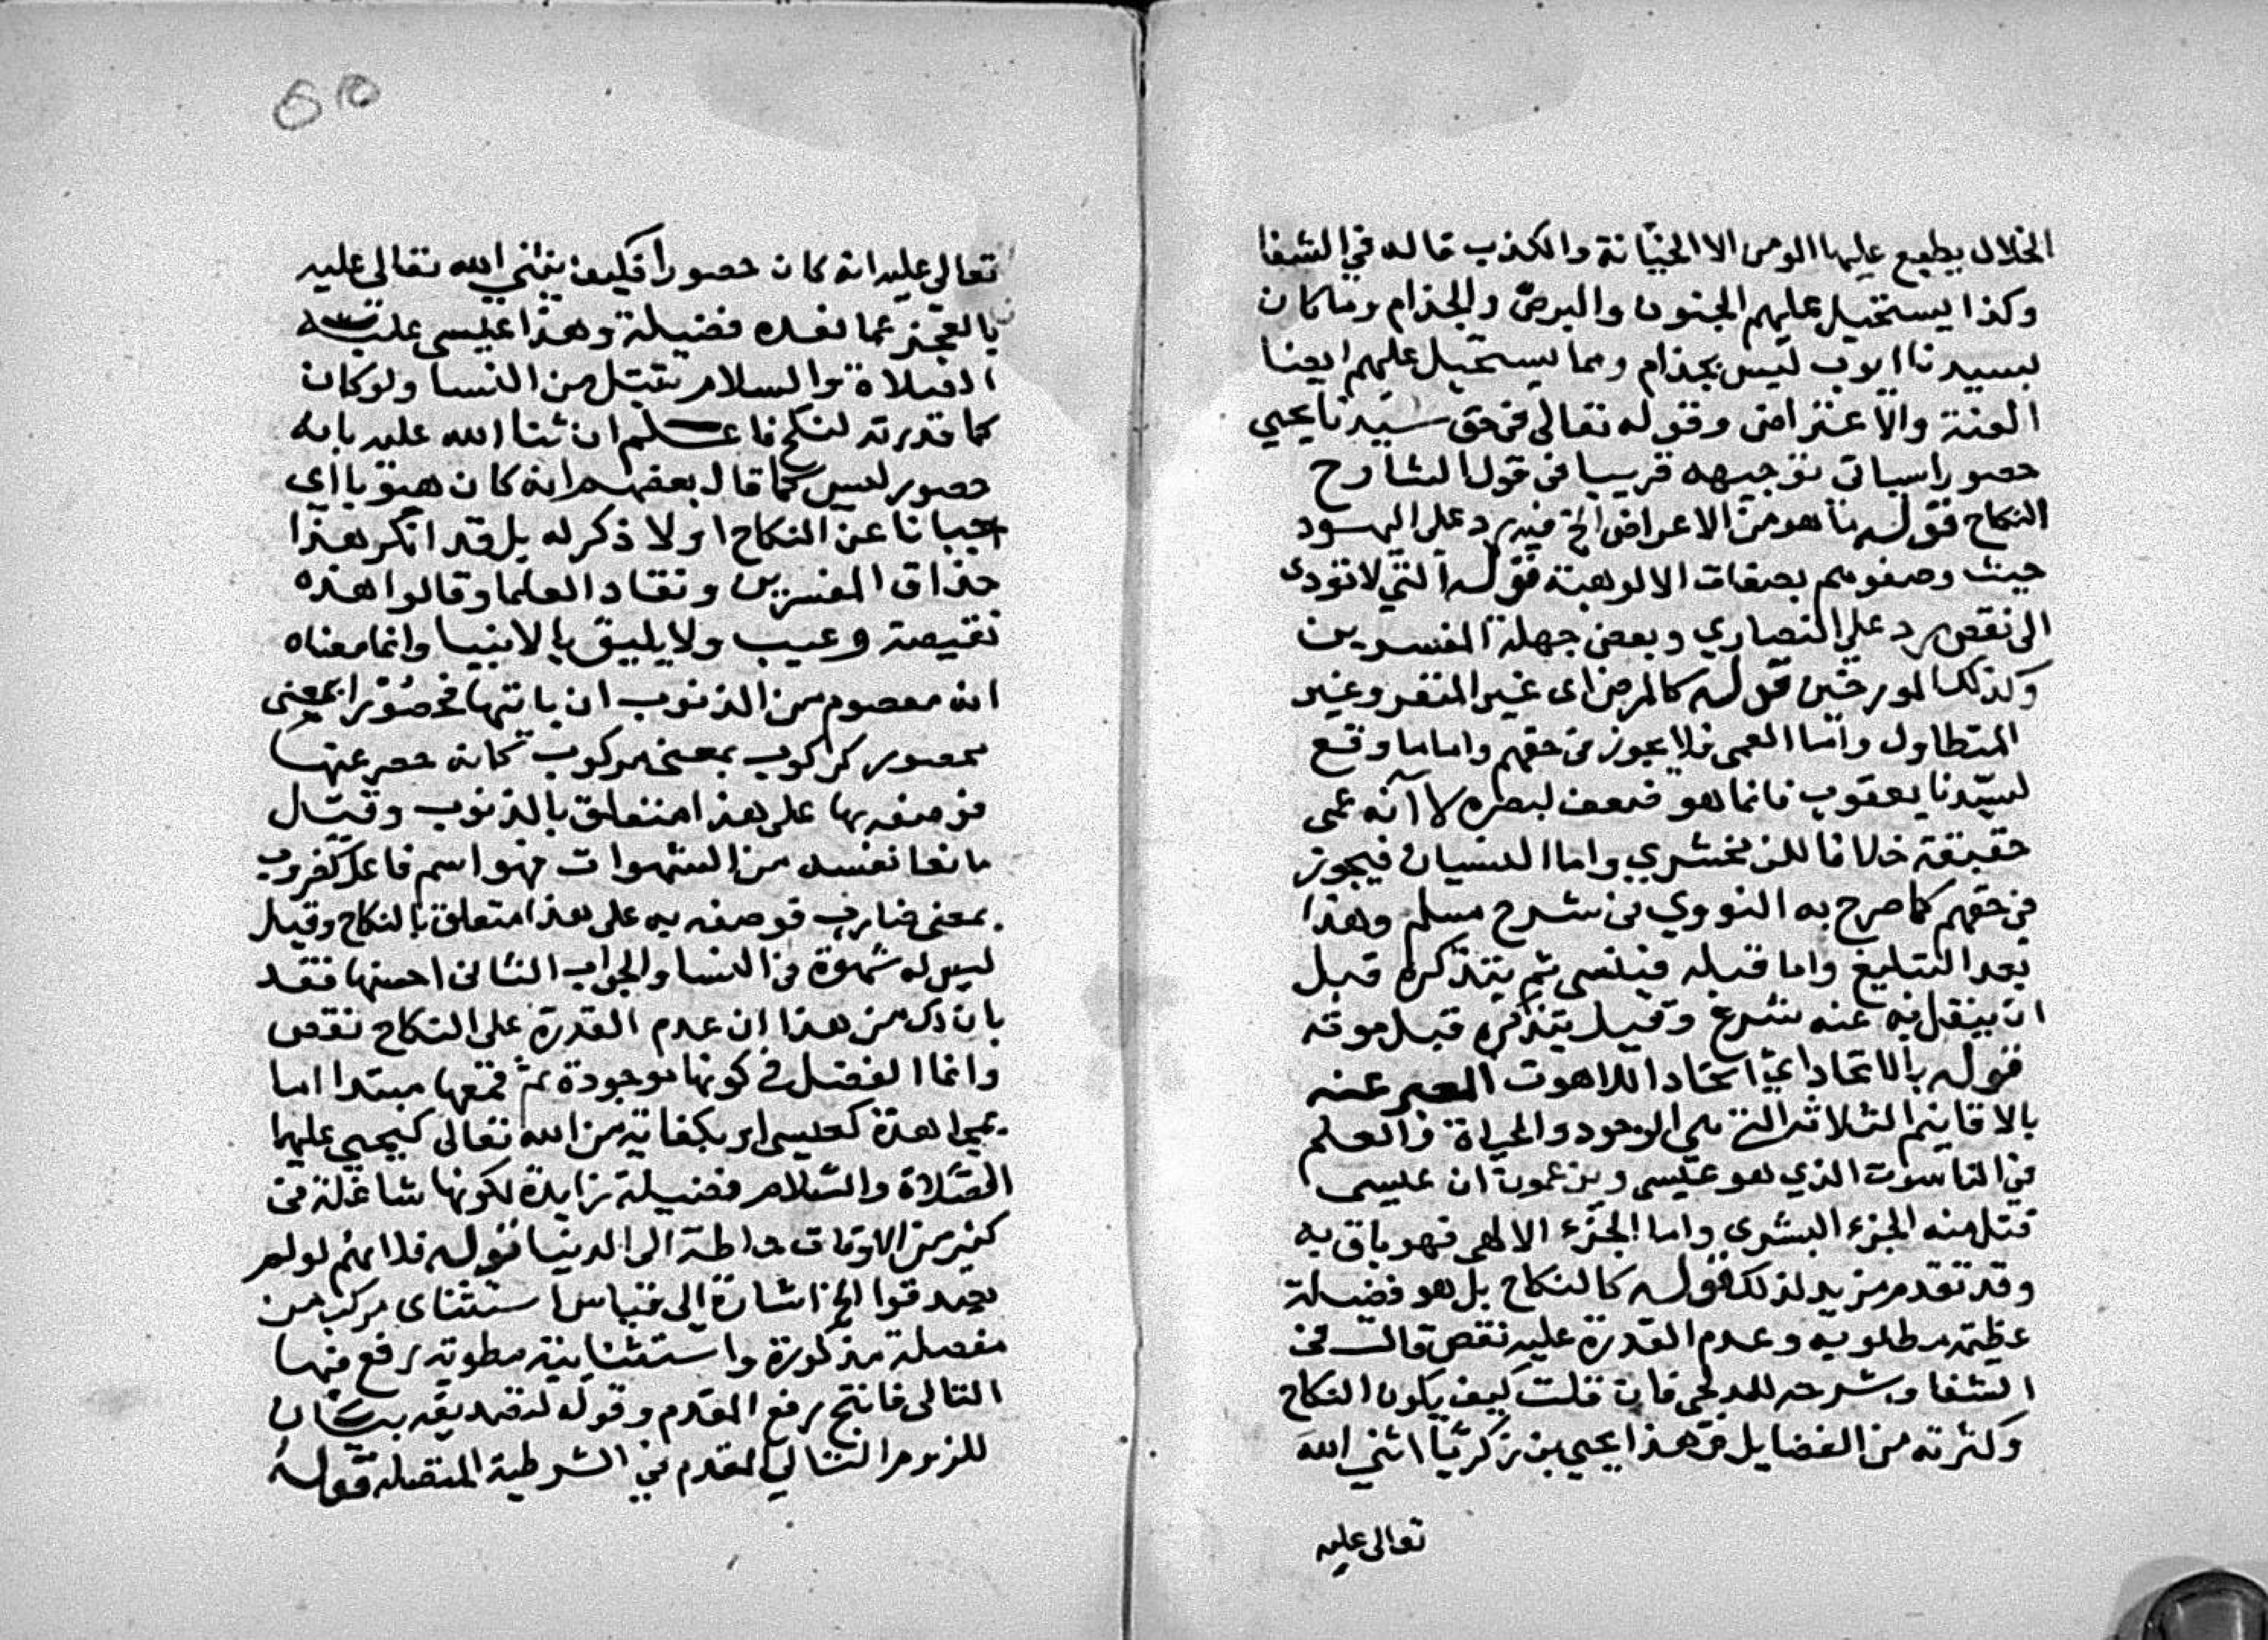 الخلال يطبع عليها المومن الا الخيانة والكذب قاله في الشفا
وكذا يستحيل عليهم الجنون والبرص والجذام وما كان
بسيدنا ايوب ليس بجذام ومما يستحيل عليهم ايضا
العنة والاعتراض وقوله تعالى في حق سيدنا يحيي
حصورا سياتي توجيهه قريبا في قول الشارح
النكاح قوله ما هو من الاعراض الخ فيه رد على اليهود
حيث وصفوهم بصفات الالوهية قوله التي لا تودى
الى نقص رد على النصاري وبعض جهلة المفسرين
وكذلك المورخين قوله كالمرض اى غير المنفر وغير
المتطاول واما العمى فلا يجوز في حقهم واما ما وقع
لسيدنا يعقوب فانما هو ضعف لبصره لا انه عمى
حقيقة خلافا للزمخشري واما النسيان فيجوز
في حقهم كما صرح به النووي في شرح مسلم وهذا
بعد التبليغ واما قبله فينسى ثم يتذكره قبل
ان ينقل فيه عنه شرع وقيل يتذكره قبل موته
قوله بالاتحاد اي اتحاد اللاهوت المعبر عنه
بالاقانيم الثلاثة التي هي الوجود والحياة والعلم
في الناسوت الذي هو عيسى ويزعمون ان عيسى
قتل منه الجزء البشرى واما الجزء الالهي فهو باق به
وقد تقدم مزيد لذلك قوله كالنكاح بل هو فضيلة
عظيمة مطلوبه وعدم القدرة عليه نقص قال في
الشفا وشرحه للدلجي فان قلت كيف يكون النكاح
وكثرته من الفضايل وهذا يحيى بن زكريا اثني الله
تعالى عليه
تعالى عليه انه كان حصورا فكيف يثني الله تعالى عليه
بالعجز عما تعده فضيلة وهذا عيسى عليه
الصلاة والسلام تبتل من النسا ولو كان
كما قدرته لنكح فاعلم ان ثنا الله عليه بانه
حصور ليس كما قال بعضهم انه كان هيوبا اى
جبانا عن النكاح اولا ذكر له بل قد انكر هذا
حذاق المفسرين ونقاد العلما وقالوا هذه
نقيصة وعيب ولا يليق بالانبيا وانما معناه
انه معصوم من الذنوب ان ياتيها فحصورا بمعنى
محصور كركوب بمعنى مركوب كانه حصر عنها
فوصفه بها على هذا متعلق بالذنوب وقيل
مانعا نفسه من الشهوات فهو اسم فاعل كضروب
بمعنى ضارب فوصفه به على هذا متعلق بالنكاح وقيل
ليس له شهوة في النسا والجواب الثاني احسنها فقد
بان لك من هذا ان عدم القدرة على النكاح نقص
وانما الفضل في كونها موجودة ثم قمعها مبتدا اما
بمجاهدة كعيسى او بكفاية من الله تعالى كيحيي عليهما
الصلاة والسلام فضيلة زايدة لكونها شاغلة في
كثير من الاوقات حاطة الى الدنيا قوله فلانهم لو لم
يصدقوا الخ اشارة الى قياس استثناى مركب من
مفصلة مذكورة واستثنايية مطوية رفع فيها
التالى فانتج رفع المقدم وقوله لتصديقه بيان
للزوم التالي المقدم في الشرطية المتصله قوله